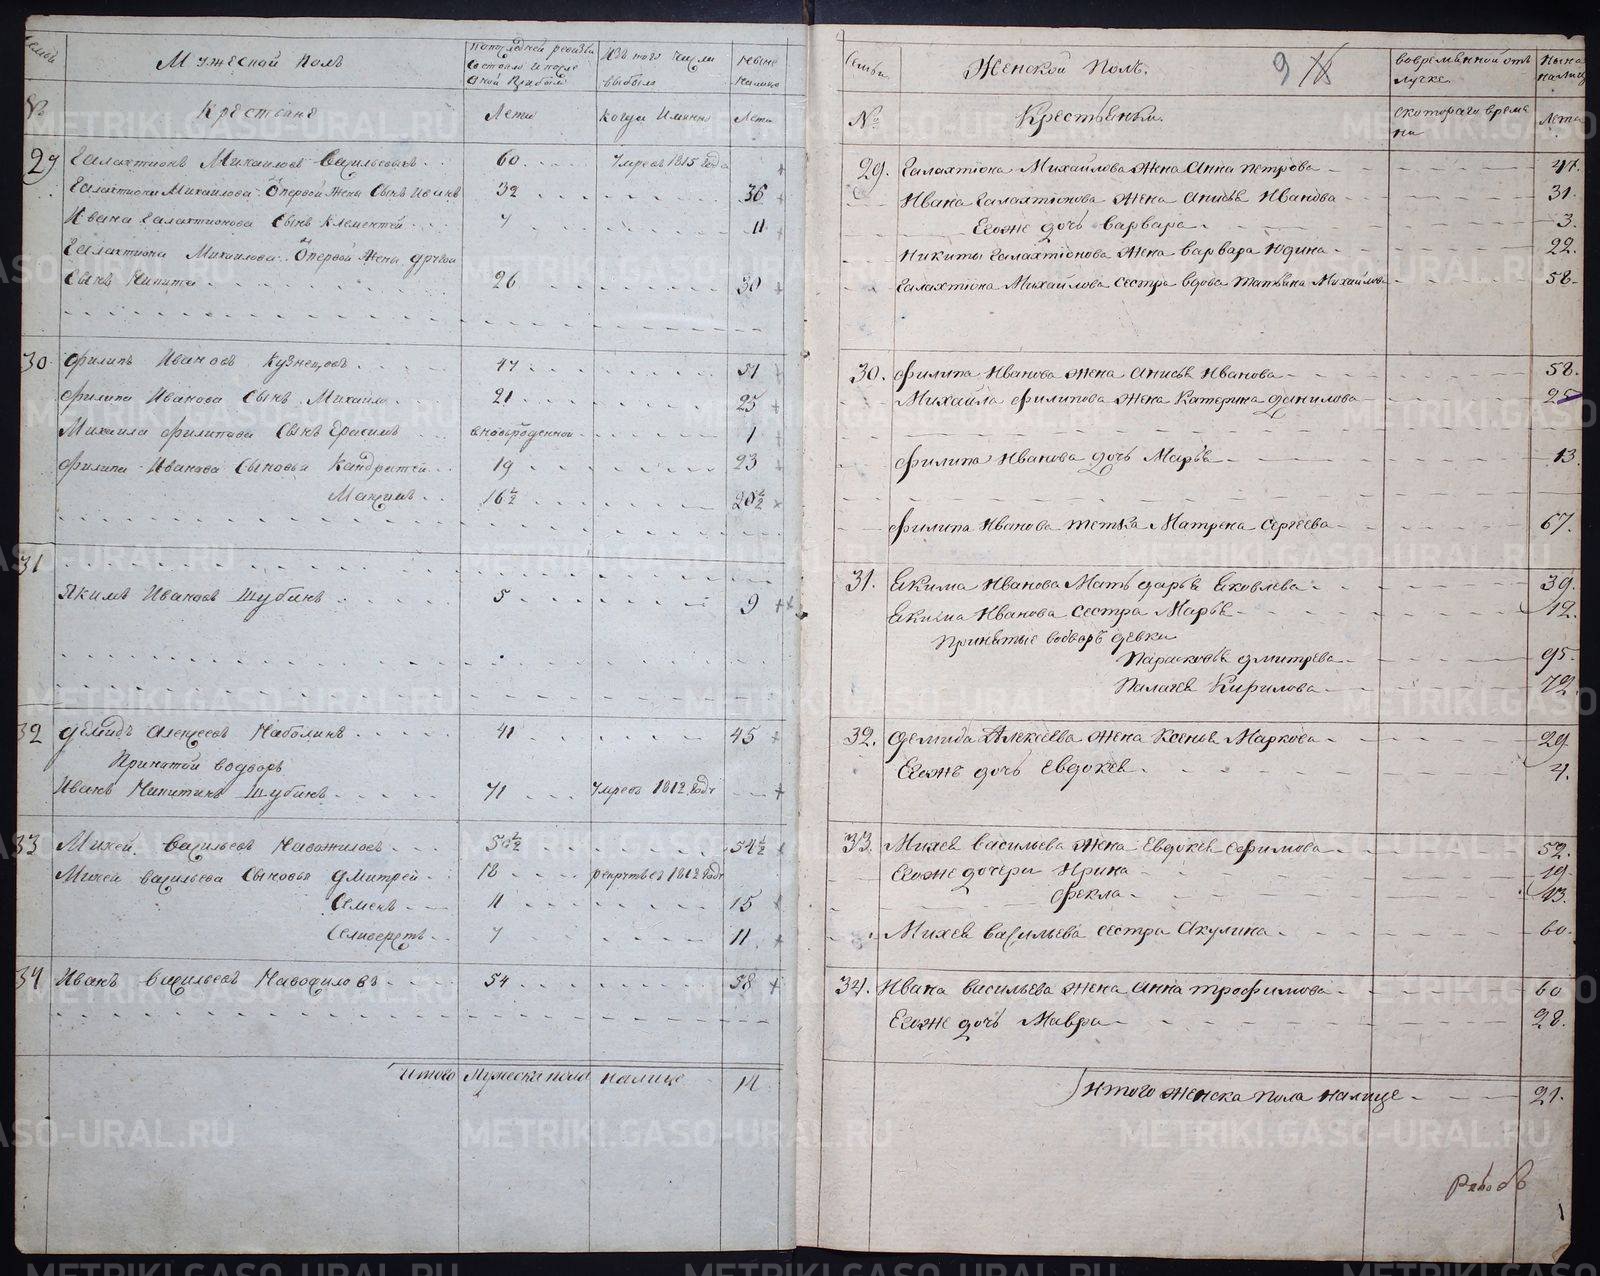 Семьи
Мужеской полъ
Попоследней ревизіи состояло и после оной прибыло
Изъ того числа выбыло
Ныне налицо
№
Крестьяне
Лета
Когда именно
Лета
29 Галахтионъ Михаиловъ Васильевыхъ 60 Умре въ 1815 году
Галахтиона Михаилова Отпервой жены Сынъ Иванъ 32 36
Ивана Галахтионова Сынъ Клементей 7 11
Галахтиона Михаилова Отпервой жены другой
Сынъ Никита 26 30
30 Филипъ Ивановъ Кузнецовъ 47 51
Филипа Иванова Сынъ Михаило 21 25
Михаила Филипова Сынъ Ерасимъ вновьрожденной 1
Филипа Иванова Сыновья Кандратей 19 23
Максимъ 16½ 20½
31
Якимъ Ивановъ Шубинъ 5 9
32 Демидъ Алексеевъ Наболинъ 41 45
Принятой водворъ
Иванъ Никитинъ Шубинъ 71 Умре въ 1812 годе
33 Михей Васильевъ Наважиловъ 50½ 54½
Михей Васильева Сыновья Дмитрей 18 рекрутъ въ 1812 годе
Семенъ 11 15
Селиверстъ 7 11
34 Иванъ Васильевъ Наважиловъ 54 58
Итого Мужеска пола налице 14
Семьи
Женской Полъ.
9
вовременной отлучке
Ныне налице
№
Крестьяньки.
скотораго времени
Лета
29. Галахтіона Михайлова жена Анна Петрова 47.
Ивана Галахтіонова жена Анисья Иванова 31.
Егоже дочь Варвара 3.
Никиты Галахтіонова жена Варвара Юдина 22.
Галахтіона Михайлова сестра вдова Татьяна Михайлова 58.
30. Филипа Иванова жена Анисья Иванова 58.
Михайла Филипова жена Катерина Данилова 25
Филипа Иванова дочь Марья 13.
Филипа Иванова тетка Матрена Сергеева 67.
31. Екима Иванова Мать Дарья Яковлева 39.
Екима Иванова сестра Марья 12.
Принятые водворъ девки
Парасковья Дмитрева 95.
Палагея Кирилова 72.
32. Демида Алексеева жена Ксенья Маркова 29.
Егожъ дочь Евдокея 4.
33. Михея Васильева жена Евдокея Ефимова 52.
Егоже дочери Ирина 19.
Фекла 13.
Михея Васильева сестра Акулина 60.
34. Ивана Васильева жена Анна Трофимова 60
Егоже дочь Мавра 28.
Итого женска пола налице 21.
METRIKI.GASO-URAL.RU